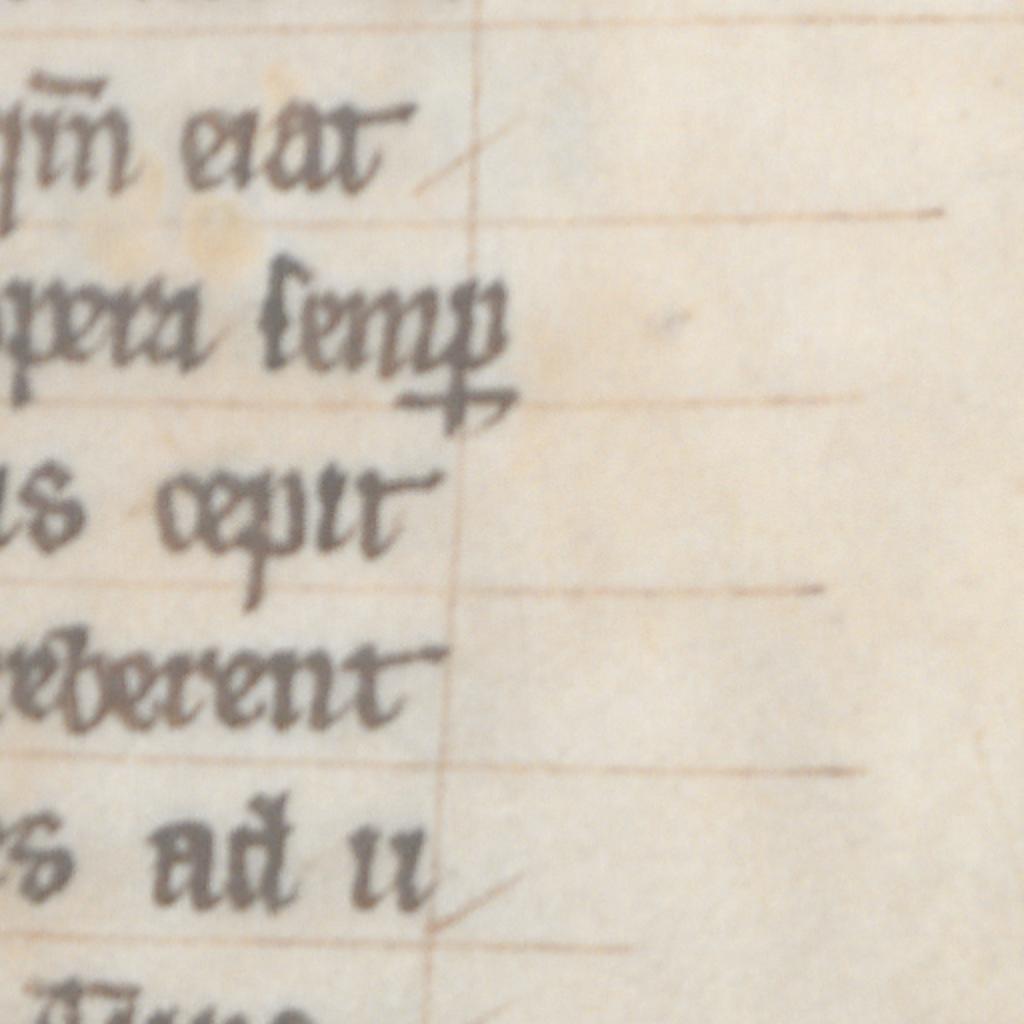 qm̄ erat
opera semꝑ
us cepit
reberent
es ad u